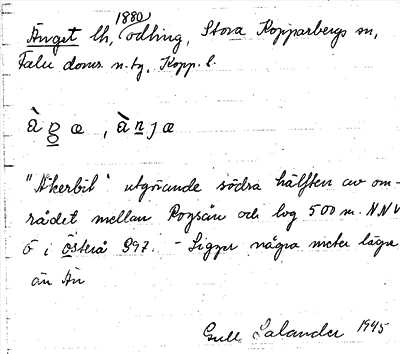 1880
Änget lh, odling, Stora Kopparbergs sn,
Falu doms. n. tg, Kopp. l.
"Åkerbit" utgörande södra hälften av om-
rådet mellan Rogsån och log 500 m. NNV
Ö i Österå 897. - Ligger några meter lägre
än Än
Gull Salander 1945